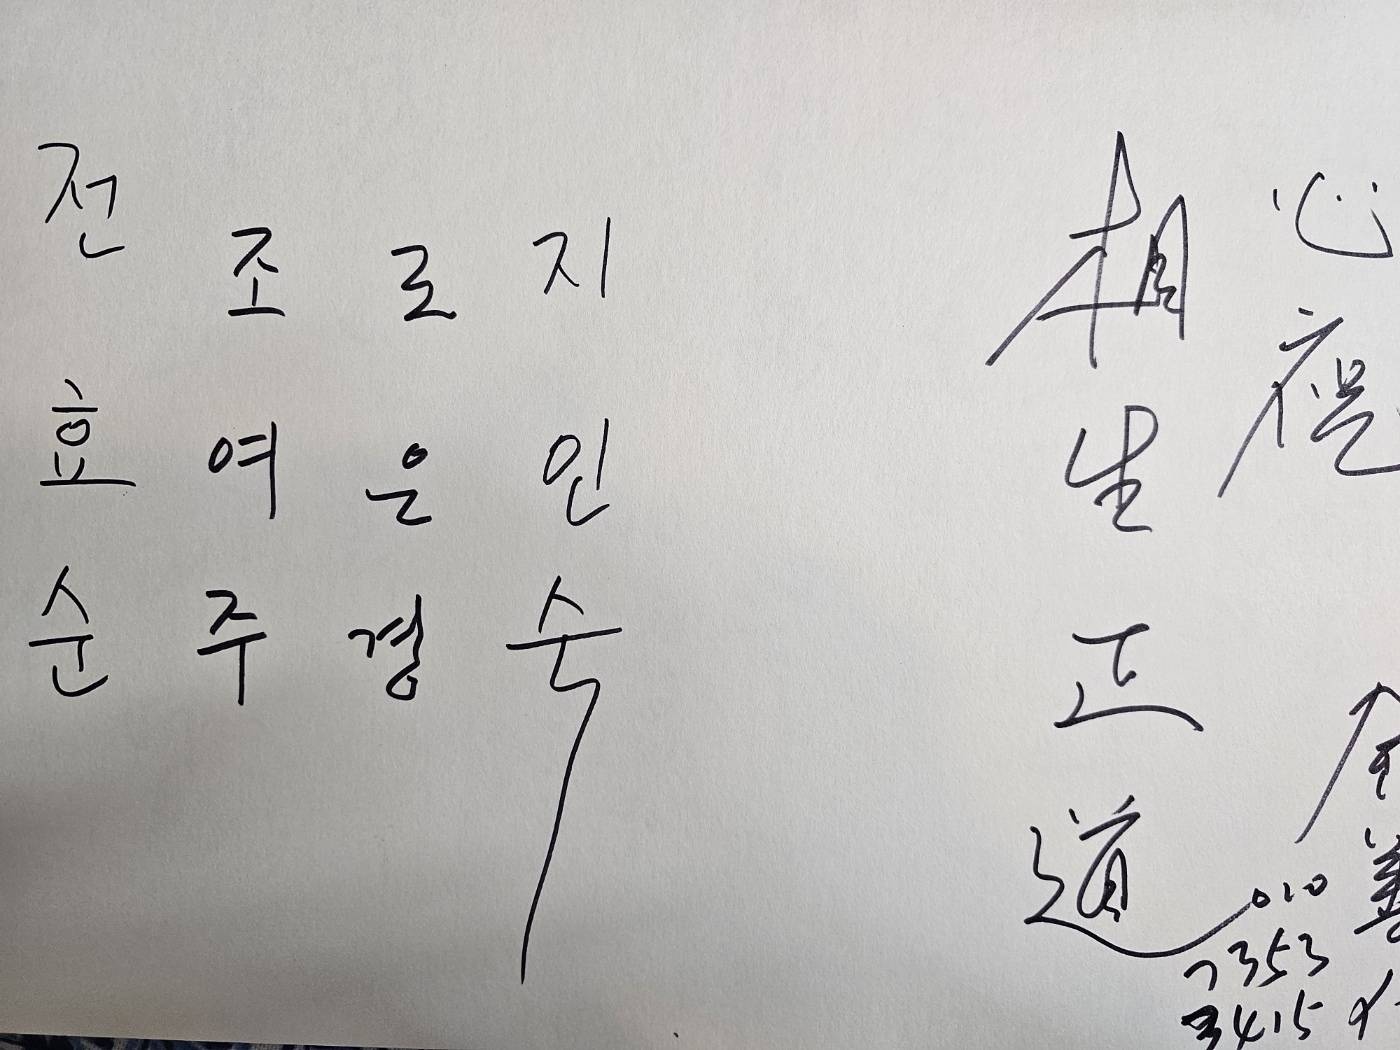 전효순
조여주
로은경
지인숙
相生正道
心
010
7353
3415